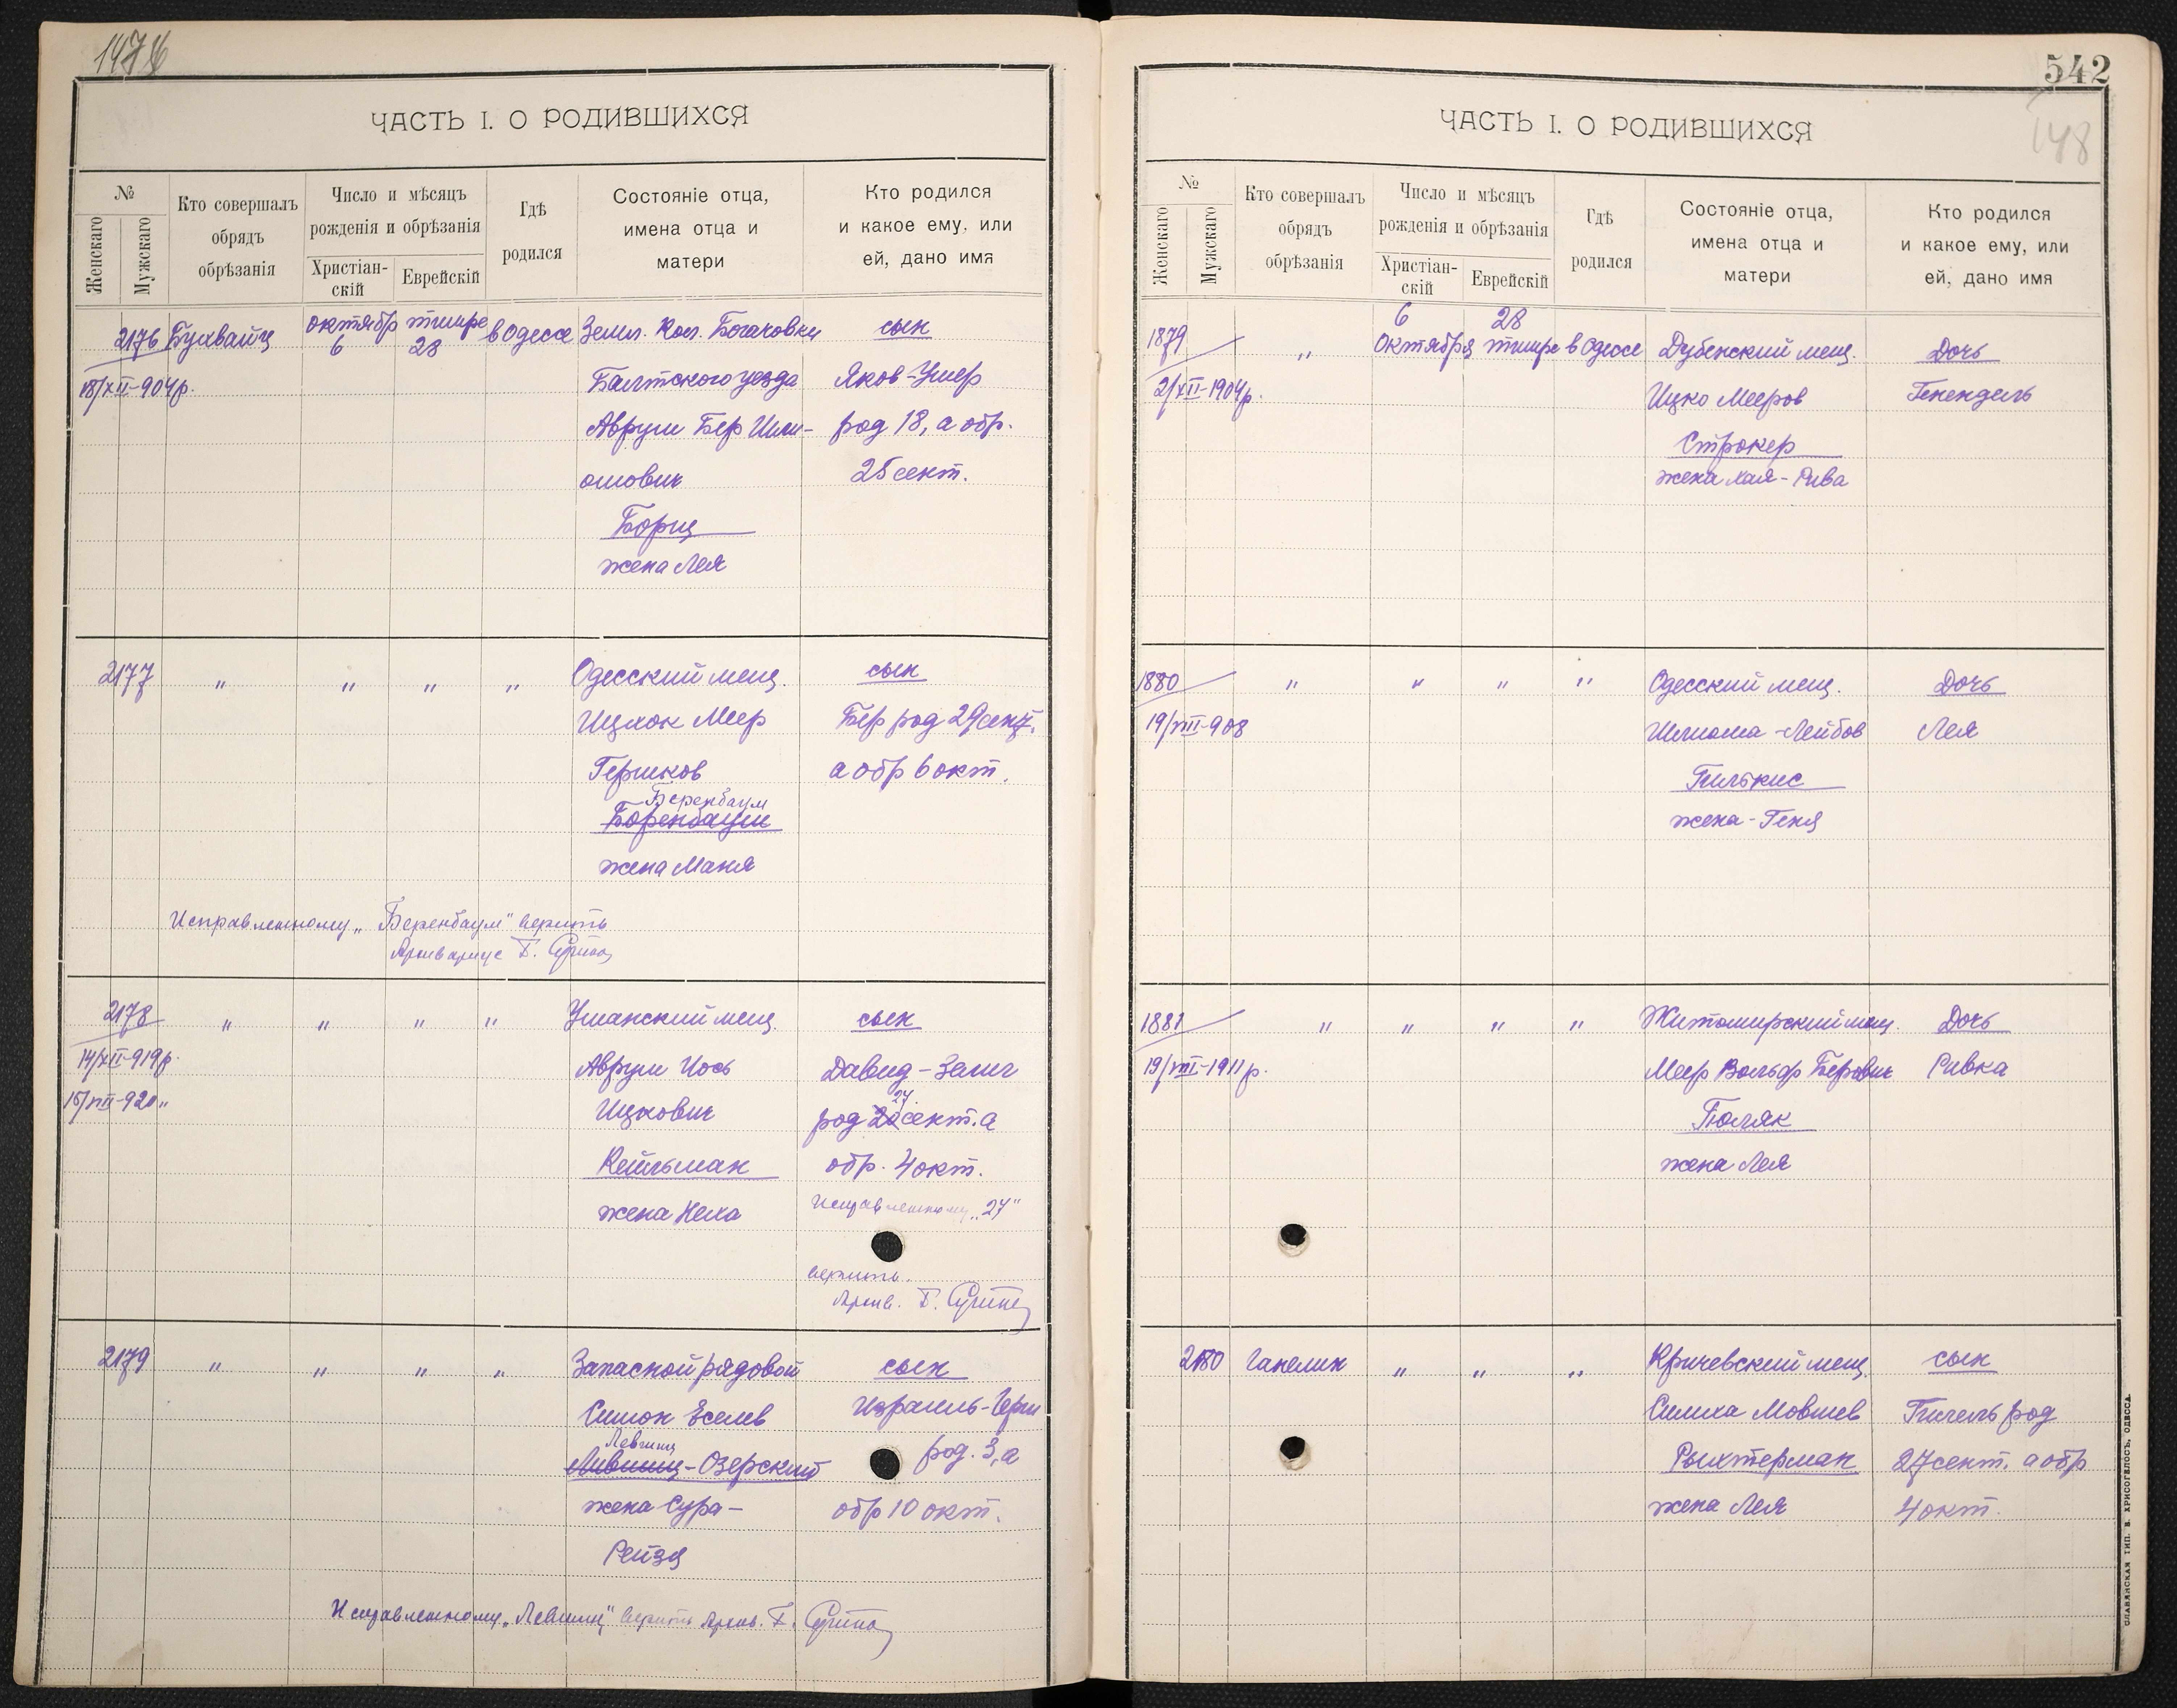 ЧАСТЬ I. О РОДИВШИХСЯ
№
Женскаго
Мужскаго
Кто совершалъ
обрядъ
обрѣзанія
Число и мѣсяцъ
рожденія и обрѣзанія
Христіан-
скій
Еврейскій
Гдѣ
родился
Состояніе отца,
имена отца и
матери
Кто родился
и какое ему, или
ей, дано имя
2176 Бухвайц октябр 6 тишре 28 в Одессе Земл. Кол. Богачовки сын
18/XII-904р. Балтского уезда Яков-Ушер
Аврум Бер Шли- род 18, а обр.
омович 25 сент.
Борщ
жена Лея
2177 " " " " Одесский мещ. сын
Ицхок Меер Бер род 29 сент.
Гершков а обр 6 окт.
Беренбаум
Боренбаум
жена Маня
Исправленному „Беренбаум" верить
Архивариус
2178 " " " " Уманский мещ. сын
14/XII-919р. Аврум Иось Давид-Зелиг
15/VIII-920" Ицкович род 27 сент. а
Кейльман обр. 4 окт.
жена Неха Исправленному „27"
верить.
Архив.
2179 " " " " Запасной рядовой сын
Симон Еселев Израиль-Герш
Левшиц
Лившиц-Озерский род. 3, а
жена Сура- обр 10 окт.
Рейзя
Исправленному „Левшиц" верить Архив.
542
148
ЧАСТЬ I. О РОДИВШИХСЯ
№
Женскаго
Мужскаго
Кто совершалъ
обрядъ
обрѣзанія
Число и мѣсяцъ
рожденія и обрѣзанія
Христіан-
скій
Еврейскій
Гдѣ
родился
Состояніе отца,
имена отца и
матери
Кто родился
и какое ему, или
ей, дано имя
1879 " 6 Октября 28 тишре в Одессе Дубенский мещ. Дочь
2/XII-1904р. Ицко Мееров Генендель
Строкер
жена Хая-Рива
1880 " " " " Одесский мещ. Дочь
19/VIII-908 Шлиома-Лейбов Лея
Гилькис
жена-Геня
1881 " " " " Житомирский мещ. Дочь
19/VIII-1911р. Меер Вольф Берович Ривка
Поляк
жена Лея
2180 Ганелин " " " Кричевский мещ. сын
Симха Мовшев Гилель род
Рыхтерман 27 сент. а обр
жена Лея 4 окт.
СЛАВЯНСКАЯ ТИП. В. ХРИСОГЕЛОСЪ, ОДЕССА.